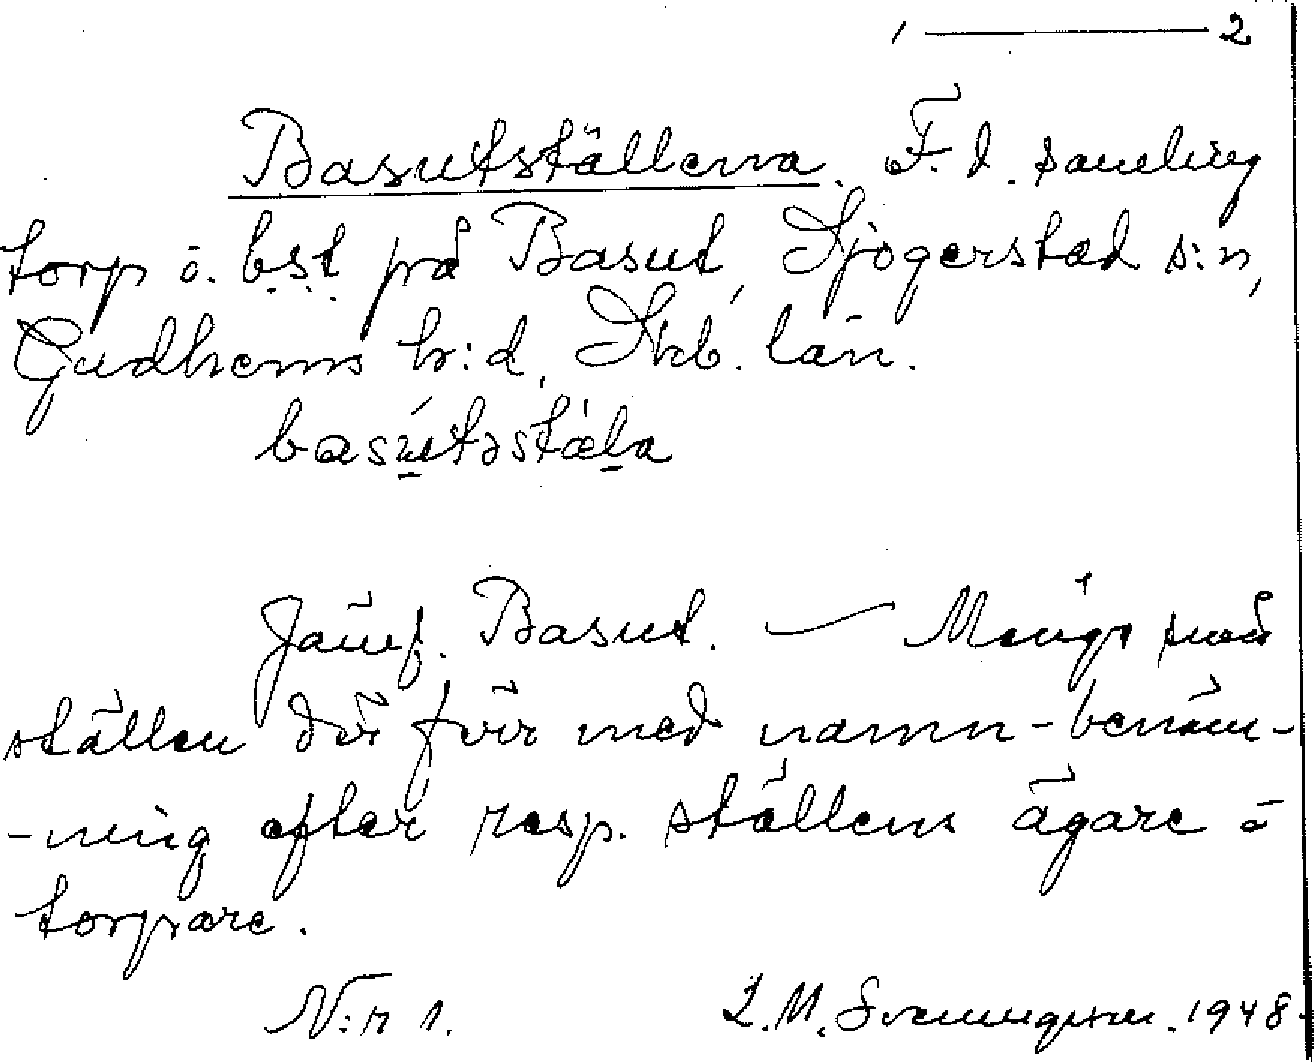 1 ——— 2
Basutställena. F. d. samling
torp o. bst på Basut, Sjogerstad s:n,
Gudhems h:d, Skb. län.
basútəstæla
Jämf. Basut. — Många små
ställen där förr med namn-benäm-
-ning efter resp. ställens ägare o
torpare.
N:r 1. L.M. Svenungsson. 1948.